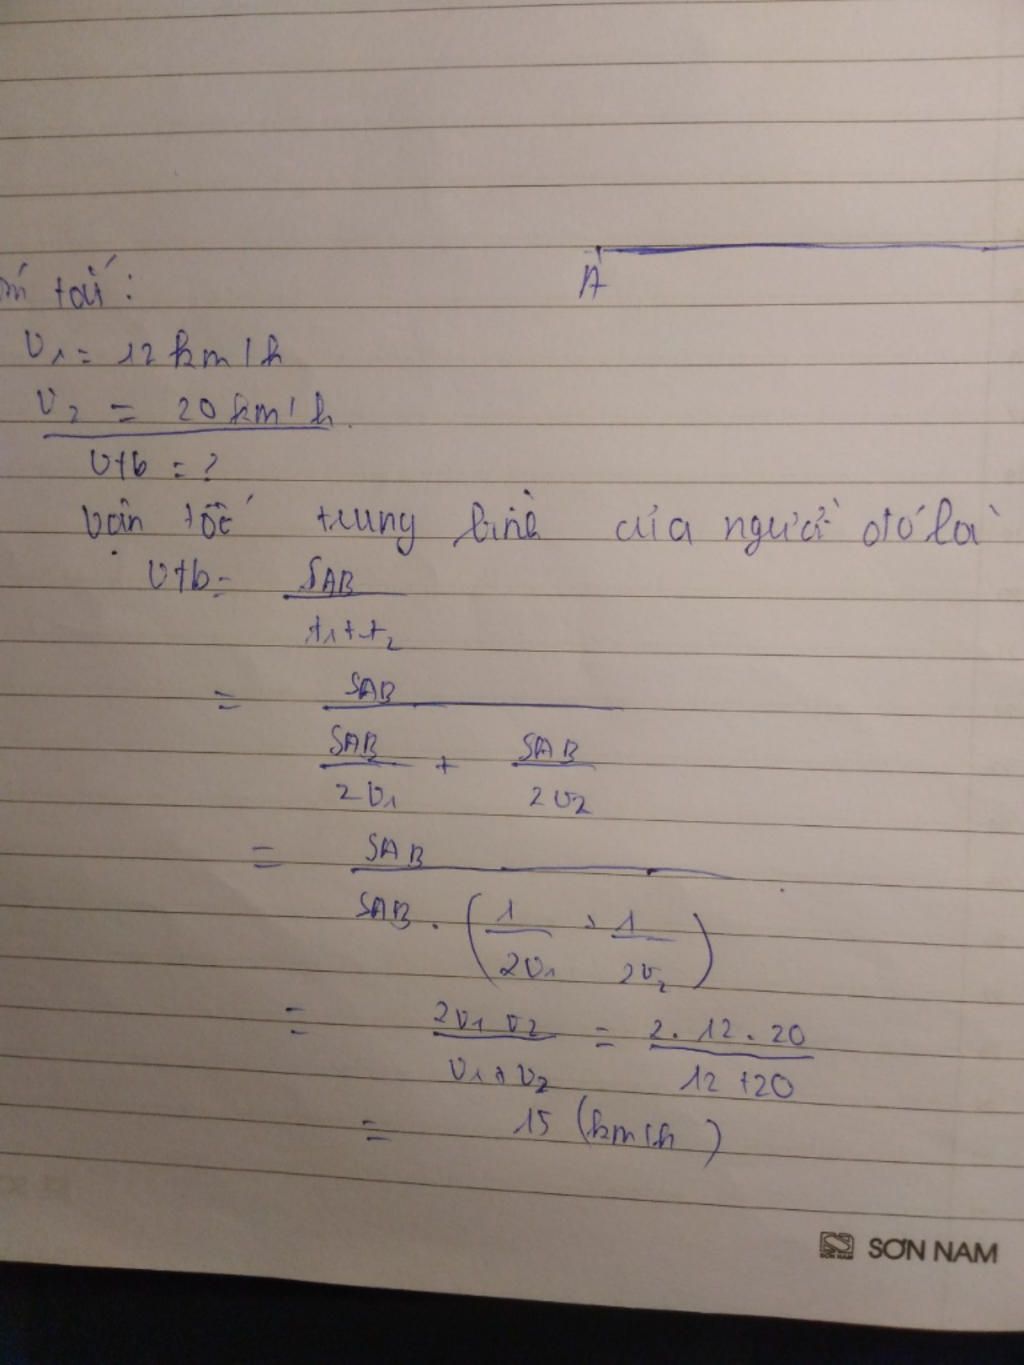 A
tắt:
v1 = 12 km/h
v2 = 20 km/h
vtb = ?
Vận tốc trung bình của người đó là
vtb = SAB
t1 + t2
= SAB
SAB + SAB
2v1 2v2
= SAB
SAB . ( 1 + 1 )
2v1 2v2
= 2v1 v2 = 2 . 12 . 20
v1 + v2 12 + 20
= 15 (km/h)
SƠN NAM